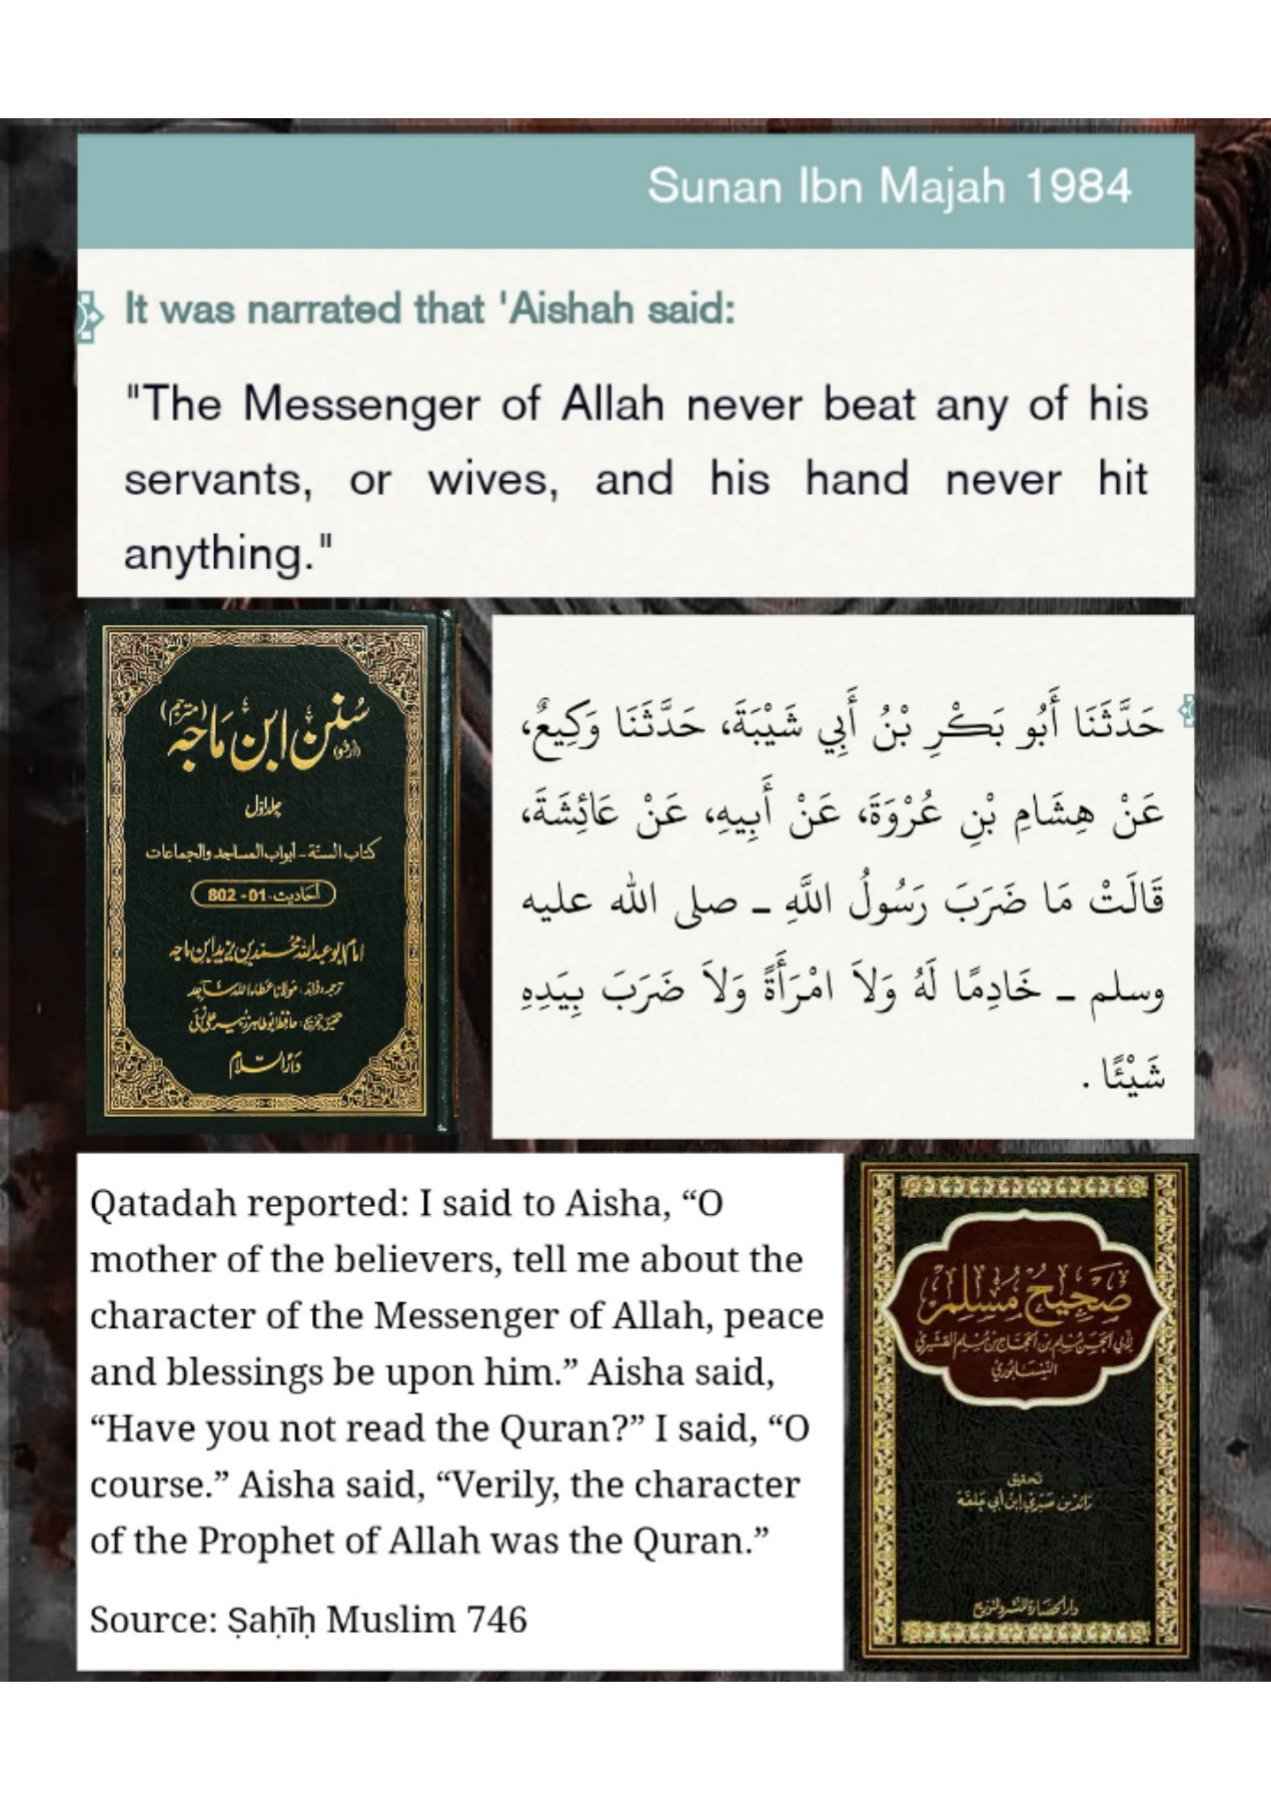 Sunan Ibn Majah 1984
It was narrated that 'Aishah said:
"The Messenger of Allah never beat any of his
servants, or wives, and his hand never hit
anything."
سُنن ابن مَاجَه (مترجم)
(اردو)
جلد اوّل
كتاب السنّة - أبواب المساجد والجماعات
أحاديث: 01 - 802
امام ابو عبد الله محمد بن يزيد ابن ماجه
دَارُالسَّلام
حَدَّثَنَا أَبُو بَكْرِ بْنُ أَبِي شَيْبَةَ، حَدَّثَنَا وَكِيعٌ،
عَنْ هِشَامِ بْنِ عُرْوَةَ، عَنْ أَبِيهِ، عَنْ عَائِشَةَ،
قَالَتْ مَا ضَرَبَ رَسُولُ اللَّهِ ـ صلى الله عليه
وسلم ـ خَادِمًا لَهُ وَلاَ امْرَأَةً وَلاَ ضَرَبَ بِيَدِهِ
شَيْئًا .
Qatadah reported: I said to Aisha, “O
mother of the believers, tell me about the
character of the Messenger of Allah, peace
and blessings be upon him.” Aisha said,
“Have you not read the Quran?” I said, “O
course.” Aisha said, “Verily, the character
of the Prophet of Allah was the Quran.”
Source: Ṣaḥīḥ Muslim 746
صَحِيحُ مُسْلِم
لأبي الحسين مسلم بن الحجاج بن مسلم القشيري
النيسابوري
تحقيق
رائد بن صبري ابن أبي علفة
دار الحضارة للنشر والتوزيع